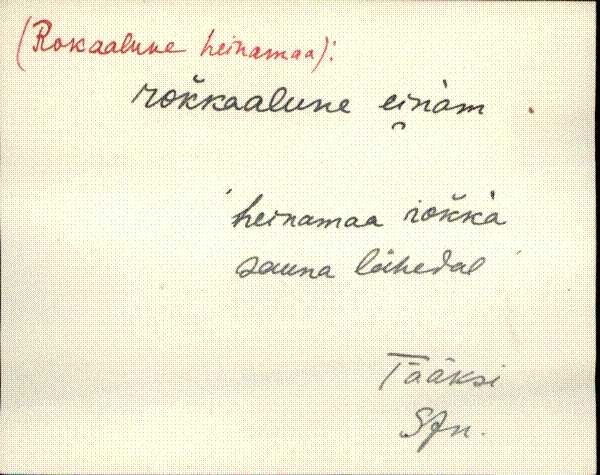 (Rokaalune heinamaa):
rokkaalune einam
'heinamaa rokka
sauna lähedal'
Tääksi
SJn.